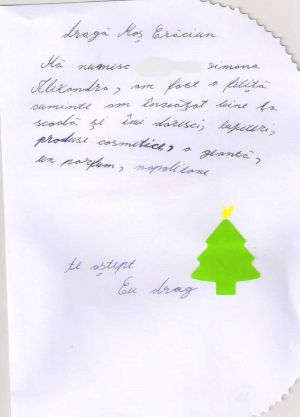 dragă Moș Crăciun
Mă numesc simona
Alexandra, am fost o fetiță
cuminte am învățat bine la
scoală și îmi doresc,
produse cosmetice, o geantă,
un parfum, napolitane
te aștept
Cu drag